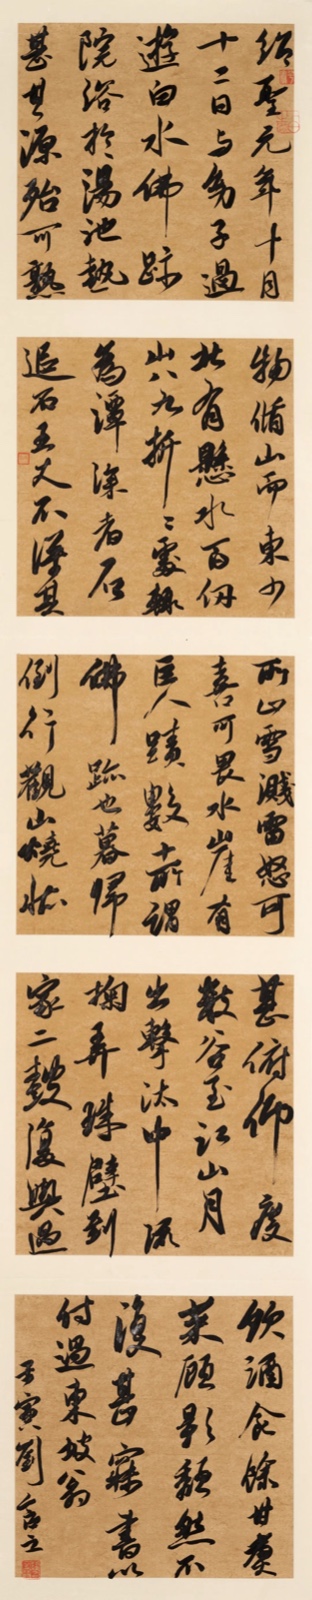 紹聖元年十月
十二日与幼子過
遊白水佛跡
院浴於湯池熱
甚其源殆可熟
物循山而東少
北有懸水百仞
山八九折〻處輒
為潭深者石
追石五丈不得其
所止雪濺雷怒可
喜可畏水崖有
巨人蹟數十所謂
佛跡也暮歸
倒行觀山燒壯
甚俯仰度
數谷至江山月
出擊汰中流
掬弄珠璧到
家二鼓復與過
飲酒食餘甘煮
菜顧影頹然不
復甚寐書以
付過東坡翁
壬寅劉立